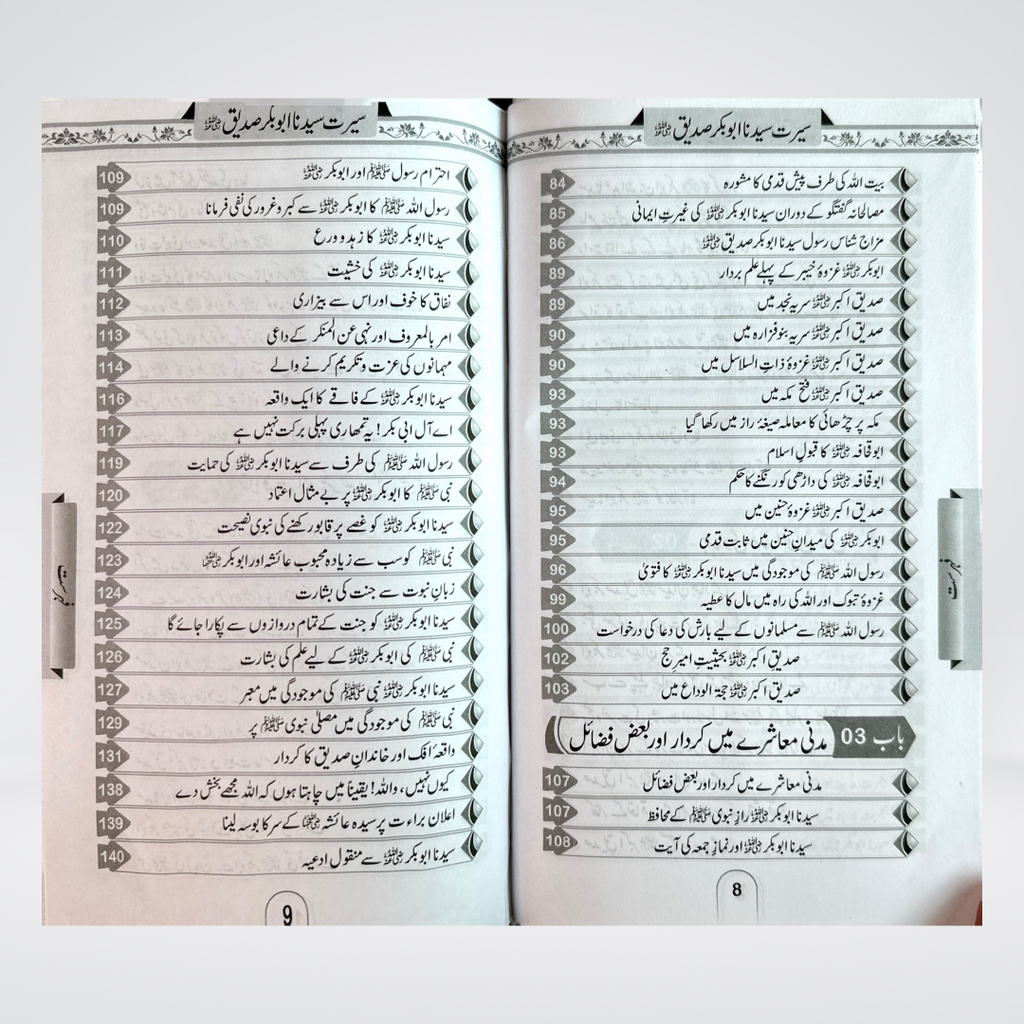 سیرت سیدنا ابوبکر صدیق رضی اللہ عنہ
بیت اللہ کی طرف پیش قدمی کا مشورہ 84
مصالحانہ گفتگو کے دوران سیدنا ابوبکر رضی اللہ عنہ کی غیرتِ ایمانی 85
مزاج شناس رسول سیدنا ابوبکر صدیق رضی اللہ عنہ 86
ابوبکر رضی اللہ عنہ غزوۂ خیبر کے پہلے علم بردار 89
صدیق اکبر رضی اللہ عنہ سریہ نجد میں 89
صدیق اکبر رضی اللہ عنہ سریہ بنو فزارہ میں 90
صدیق اکبر رضی اللہ عنہ غزوۂ ذات السلاسل میں 90
صدیق اکبر رضی اللہ عنہ فتح مکہ میں 93
مکہ پر چڑھائی کا معاملہ صیغۂ راز میں رکھا گیا 93
ابوقحافہ رضی اللہ عنہ کا قبولِ اسلام 93
ابوقحافہ رضی اللہ عنہ کی داڑھی کو رنگنے کا حکم 94
صدیق اکبر رضی اللہ عنہ غزوۂ حنین میں 95
ابوبکر رضی اللہ عنہ کی میدانِ حنین میں ثابت قدمی 95
رسول اللہ ﷺ کی موجودگی میں سیدنا ابوبکر رضی اللہ عنہ کا فتویٰ 96
غزوۂ تبوک اور اللہ کی راہ میں مال کا عطیہ 99
رسول اللہ ﷺ سے مسلمانوں کے لیے بارش کی دعا کی درخواست 100
صدیق اکبر رضی اللہ عنہ بحیثیتِ امیر حج 102
صدیق اکبر رضی اللہ عنہ حجۃ الوداع میں 103
باب 03 مدنی معاشرے میں کردار اور بعض فضائل
مدنی معاشرے میں کردار اور بعض فضائل 107
سیدنا ابوبکر رضی اللہ عنہ رازِ نبوی ﷺ کے محافظ 107
سیدنا ابوبکر رضی اللہ عنہ اور نمازِ جمعہ کی آیت 108
8
فہرست
سیرت سیدنا ابوبکر صدیق رضی اللہ عنہ
احترام رسول ﷺ اور ابوبکر رضی اللہ عنہ 109
رسول اللہ ﷺ کا ابوبکر رضی اللہ عنہ سے کبر و غرور کی نفی فرمانا 109
سیدنا ابوبکر رضی اللہ عنہ کا زہد و ورع 110
سیدنا ابوبکر رضی اللہ عنہ کی خشیت 111
نفاق کا خوف اور اس سے بیزاری 112
امر بالمعروف اور نہی عن المنکر کے داعی 113
مہمانوں کی عزت و تکریم کرنے والے 114
سیدنا ابوبکر رضی اللہ عنہ کے فاقے کا ایک واقعہ 116
اے آل ابی بکر! یہ تمھاری پہلی برکت نہیں ہے 117
رسول اللہ ﷺ کی طرف سے سیدنا ابوبکر رضی اللہ عنہ کی حمایت 119
نبی ﷺ کا ابوبکر رضی اللہ عنہ پر بے مثال اعتماد 120
سیدنا ابوبکر رضی اللہ عنہ کو غصے پر قابو رکھنے کی نبوی نصیحت 122
نبی ﷺ کو سب سے زیادہ محبوب عائشہ اور ابوبکر رضی اللہ عنہما 123
زبانِ نبوت سے جنت کی بشارت 124
سیدنا ابوبکر رضی اللہ عنہ کو جنت کے تمام دروازوں سے پکارا جائے گا 125
نبی ﷺ کی ابوبکر رضی اللہ عنہ کے لیے علم کی بشارت 126
سیدنا ابوبکر رضی اللہ عنہ نبی ﷺ کی موجودگی میں معبر 127
نبی ﷺ کی موجودگی میں مصلیٰ نبوی ﷺ پر 129
واقعۂ افک اور خاندانِ صدیق کا کردار 131
کیوں نہیں، واللہ! یقیناً میں چاہتا ہوں کہ اللہ مجھے بخش دے 138
اعلان براءت پر سیدہ عائشہ رضی اللہ عنہا کے سر کا بوسہ لینا 139
سیدنا ابوبکر رضی اللہ عنہ سے منقول ادعیہ 140
9
فہرست